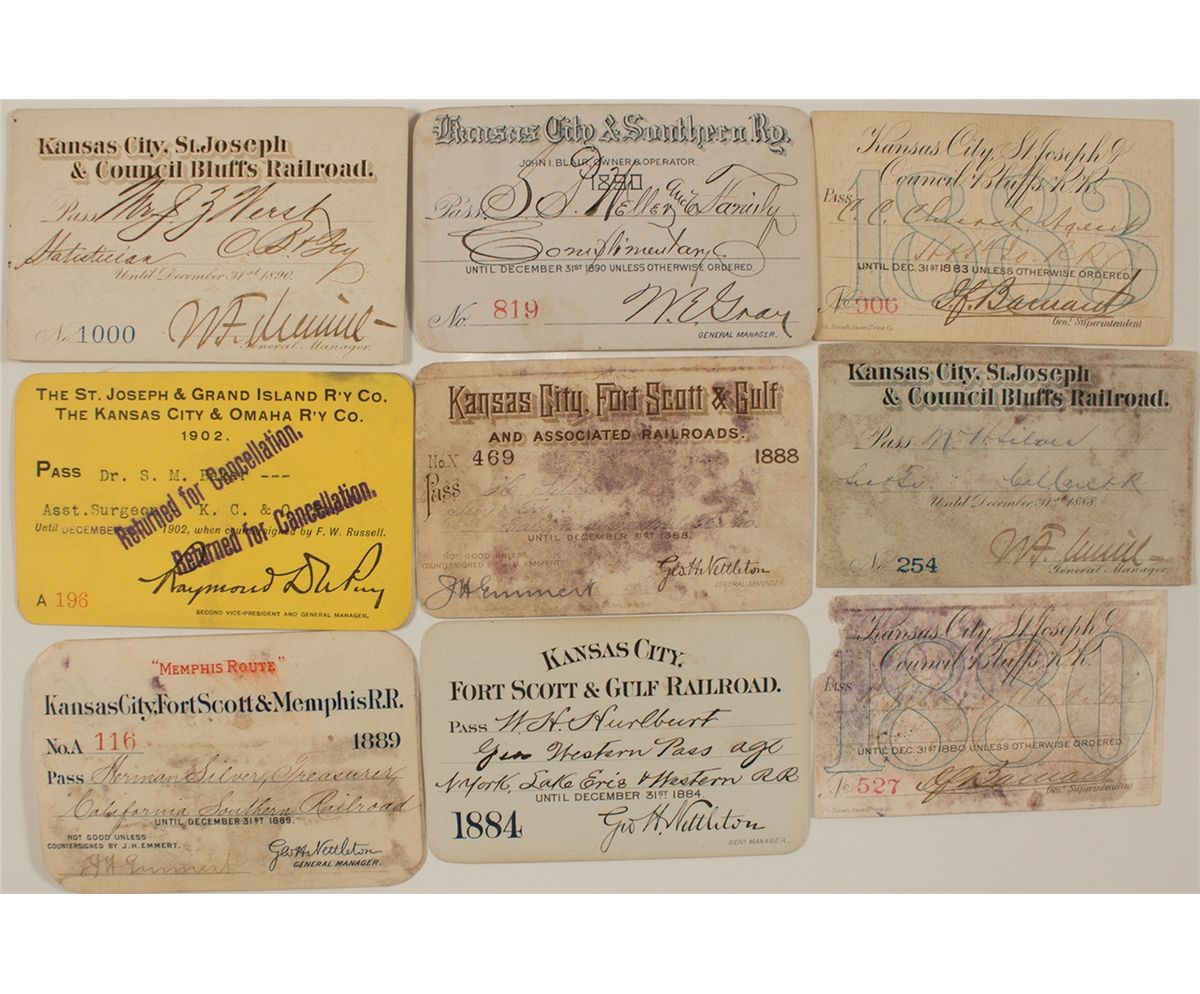 Kansas City, St. Joseph
& Council Bluffs Railroad.
Pass Mr J Z Werst
Statistician C B & Qy
Until December 31st 1890.
No. 1000
General Manager.
Kansas City & Southern Ry.
JOHN I. BLAIR, OWNER & OPERATOR.
1890
Pass Keller and Family
Complimentary
UNTIL DECEMBER 31ST 1890 UNLESS OTHERWISE ORDERED
No. 819 W. E. Gray
GENERAL MANAGER.
Kansas City, St. Joseph &
Council Bluffs R.R.
1883
Pass C. C. Church, Agent
UNTIL DEC. 31ST 1883 UNLESS OTHERWISE ORDERED
No 906 J.F. Barnard
Genl. Superintendent
THE ST. JOSEPH & GRAND ISLAND R'Y CO.
THE KANSAS CITY & OMAHA R'Y CO.
1902.
PASS Dr. S. M. ---
Asst. Surgeon, K. C. & O.
Until DECEMBER 1902, when countersigned by F. W. Russell.
Returned for Cancellation.
Returned for Cancellation.
Raymond Du Puy
A 196
SECOND VICE-PRESIDENT AND GENERAL MANAGER.
Kansas City, Fort Scott & Gulf
AND ASSOCIATED RAILROADS.
No. X 469 1888
Pass
UNTIL DECEMBER 31ST 1888.
NOT GOOD UNLESS
COUNTERSIGNED BY J.H. EMMERT.
J H Emmert Geo. H. Nettleton
GENERAL MANAGER.
Kansas City, St. Joseph
& Council Bluffs Railroad.
Pass
Until December 31st 1888.
No. 254
General Manager.
"MEMPHIS ROUTE"
Kansas City, Fort Scott & Memphis R.R.
No. A 116 1889
Pass Herman Silver, Treasurer,
California Southern Railroad
UNTIL DECEMBER 31ST 1889.
NOT GOOD UNLESS
COUNTERSIGNED BY J.H. EMMERT.
J H Emmert Geo. H. Nettleton
GENERAL MANAGER.
KANSAS CITY,
FORT SCOTT & GULF RAILROAD.
PASS W. H. Hurlburt
Gen Western Pass agt
N York, Lake Erie & Western RR
UNTIL DECEMBER 31ST 1884.
1884 Geo. H. Nettleton
GENL. MANAGER.
Kansas City, St. Joseph &
Council Bluffs R.R.
1880
Pass
UNTIL DEC. 31ST 1880 UNLESS OTHERWISE ORDERED
No 527 J.F. Barnard
Genl. Superintendent